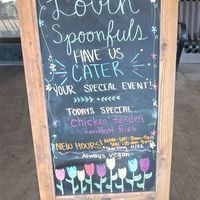 Lovin'
Spoonfuls
HAVE US
CATER
YOUR SPECIAL EVENT!
TODAYS SPECIAL
chicken tenders
+ wildcat fries
NEW HOURS!
Always vegan